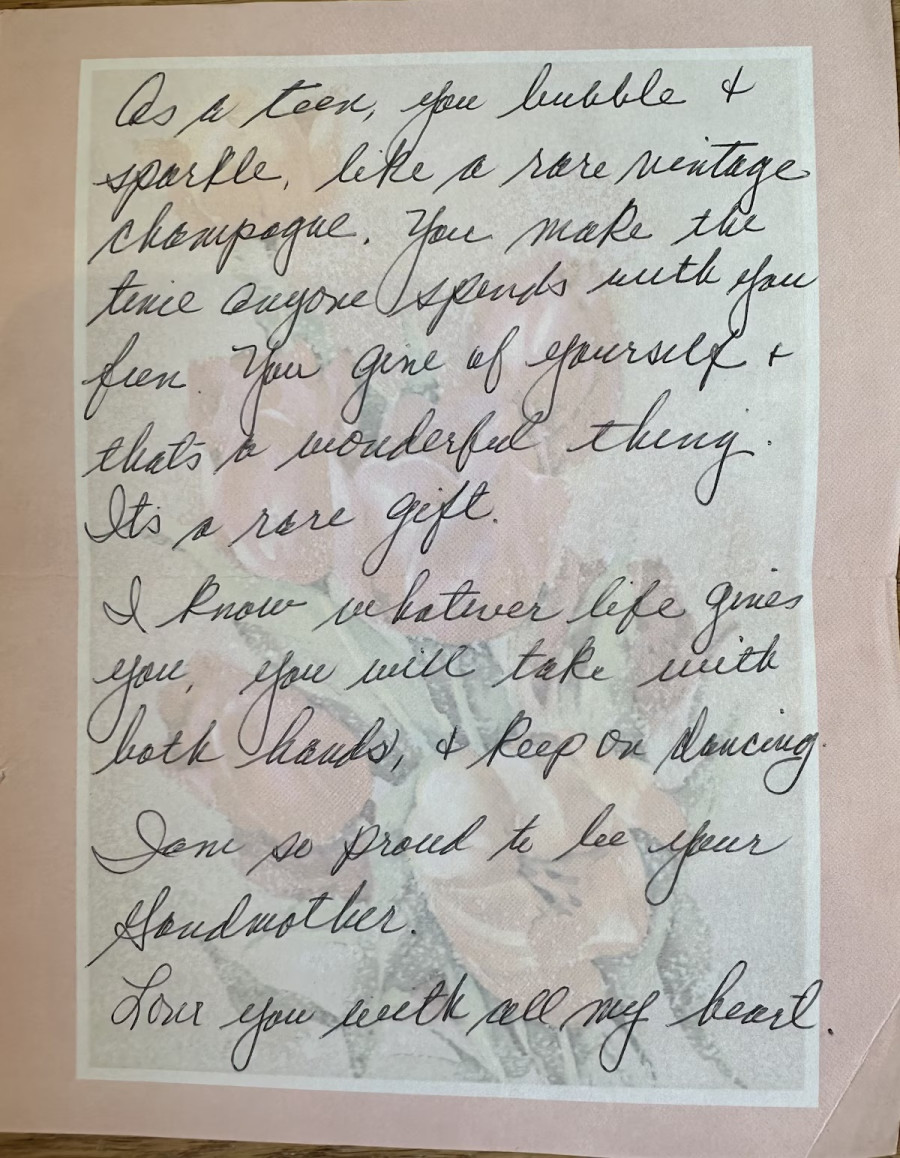 As a teen, you bubble &
sparkle, like a rare vintage
champagne. You make the
time anyone spends with you
fun. You give of yourself +
that's a wonderful thing.
It's a rare gift.
I know whatever life gives
you, you will take with
both hands, & keep on dancing.
I am so proud to be your
Grandmother.
Love you with all my heart.